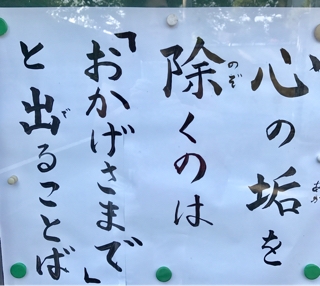 心の垢を
除くのは
「おかげさまで」
と出ることば